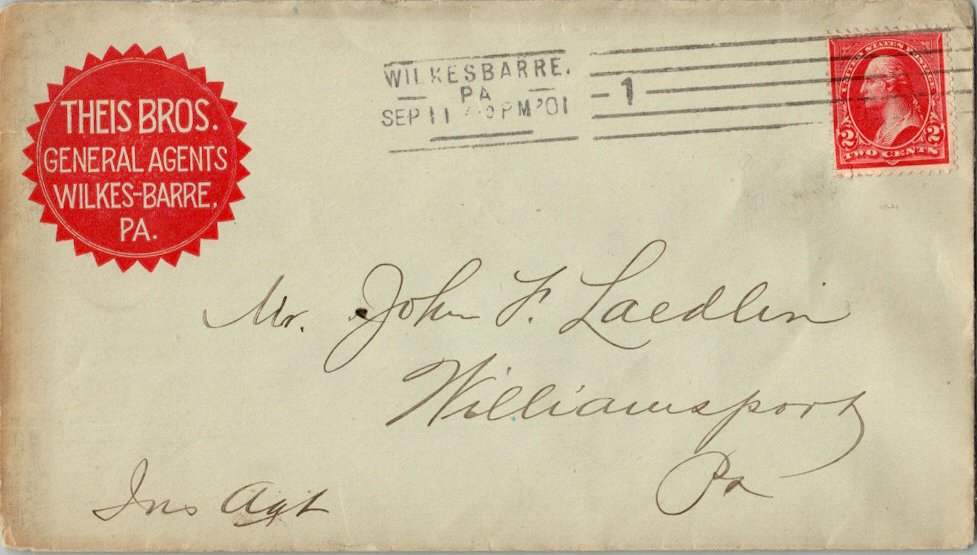 THEIS BROS.
GENERAL AGENTS
WILKES-BARRE,
PA.
WILKESBARRE,
PA
SEP 11 PM '01
1
UNITED STATES POSTAGE
2 2
TWO CENTS
Mr. John F. Laedlin
Williamsport
Pa
Ins Agt